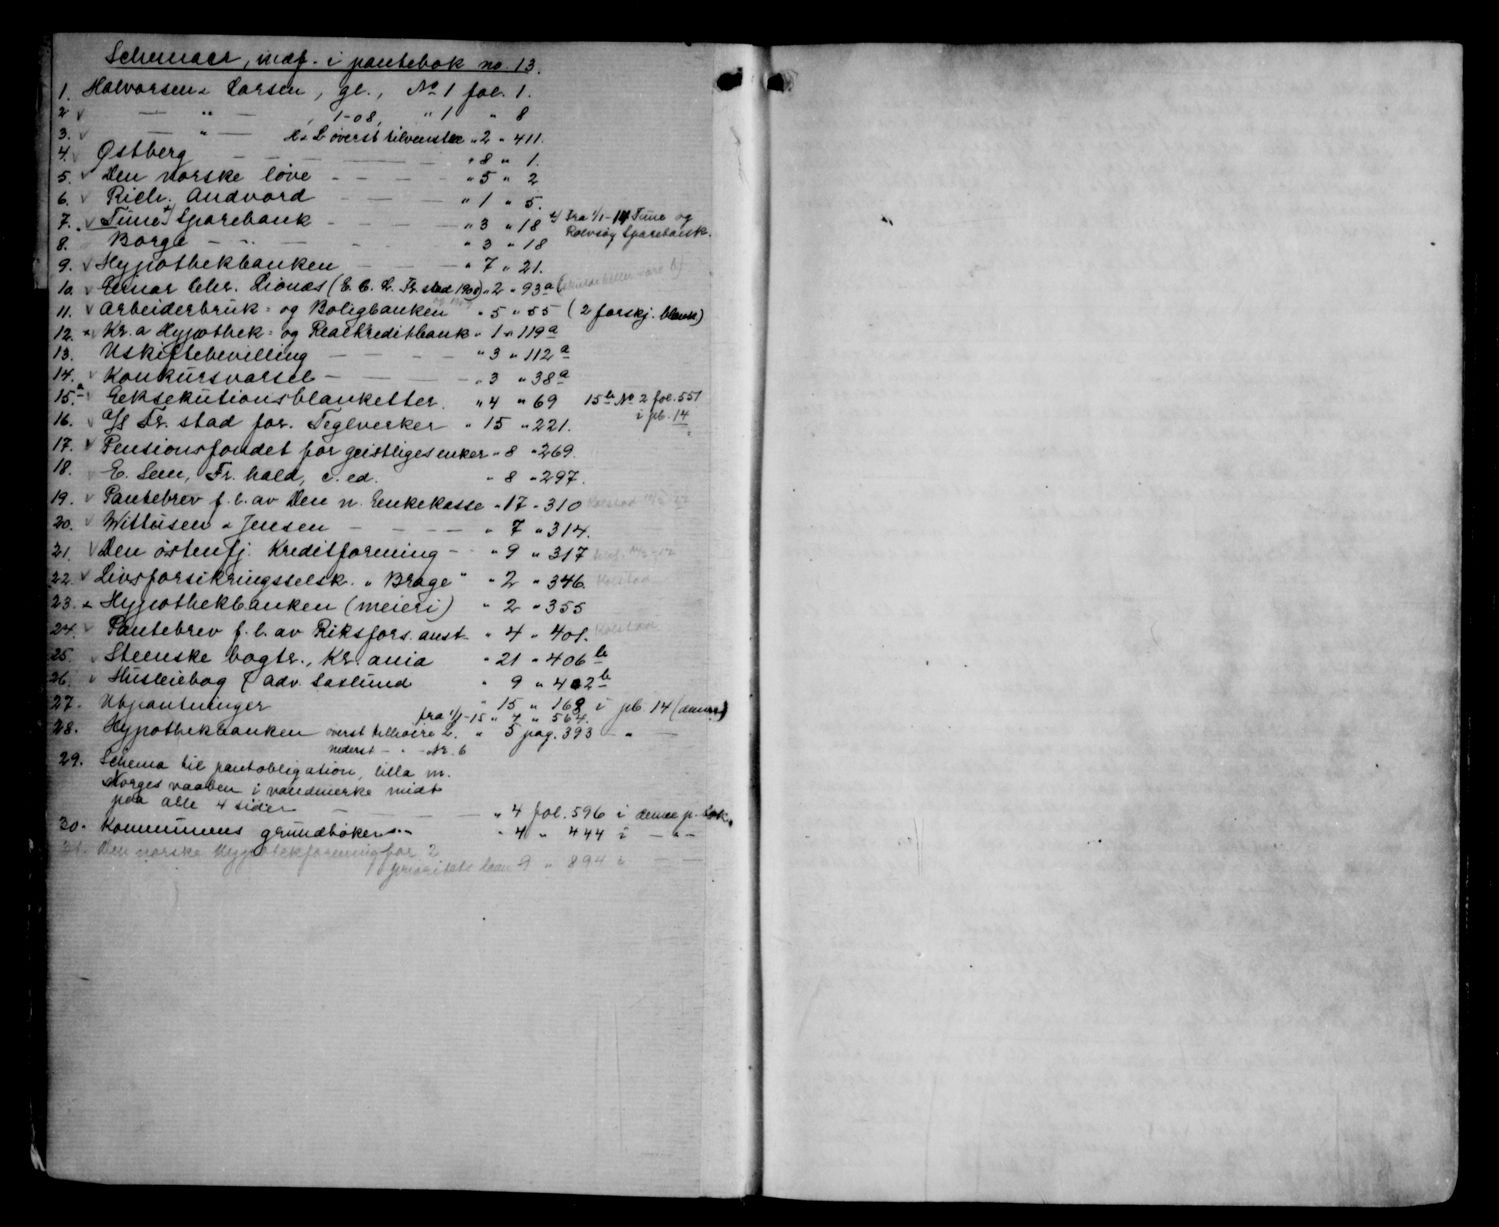 Schemaer, indf. i pantebok no. 13.
1. Halvorsen & Larsen, gl., No 1 fol. 1.
2 — " — , 1-08, " 1 " 8
3. — " — H & L øverst tilvenstre " 2 " 411.
4. Østberg — — — — " 8 " 1.
5. Den norske løve — — — " 5 " 2
6. Rich. Andvord — — — " 1 " 5.
7. Tune +) Sparebank — — — " 3 " 18 +) Fra 1/1-14 Tune og
Rolvsøy Sparebank.
8. Borge — " — — — " 3 " 18
9. Hypothekbanken — — — " 7 " 21.
10. Einar Chr. Lionæs (E. C. L. Fr.stad 1908) " 2 " 93a
11. Arbeiderbruk- og Boligbanken " 5 " 55 (2 forskj. blank)
12. Kr.a Hypothek- og Realkreditbank " 1 " 119a
13. Uskiftebevilling — — — " 3 " 112a
14. Konkursvarsel — — — " 3 " 38a
15.a Eeksekutionsblanketter. " 4 " 69 15b No 2 fol. 551
i pb. 14
16. A/S Fr. stad for. Teglverker " 15 " 221.
17. Pensionsfondet for geistliges enker " 8 " 269.
18. E. Sem, Fr. hald, c. ed. " 8 " 297.
19. Pantebrev f. l. av Den n. Enkekasse " 17 " 310
20. Wittusen & Jensen — — — " 7 " 314.
21. Den østenfj. Kreditforening — " 9 " 317
22. Livsforsikringsselsk. " Brage " " 2 " 346.
23. Hypothekbanken (meieri) " 2 " 355
24. Pantebrev f. l. av Riksfors. anst. " 4 " 401.
25. Steenske bogtr., Kr.ania " 21 " 406b
26. Husleiebog f adv. Saxlund " 9 " 402b
27. Utpantninger " 15 " 168 i pb 14 (denne)
fra 1/1-15 " 7 " 564.
28. Hypothekbanken øverst tilhøire 2. " 5 pag. 393 — " —
nederst — " — Nr. 6
29. Schema til pantobligation, lilla m.
Norges vaaben i vandmerke midt
paa alle 4 sider — — " 4 fol. 596 i denne p. bok.
30. Kommunens grundbøker — " 4 " 444 i — " —
31. Den norske Hypotekforening for 2
prioritets laan 9 " 894 i — —